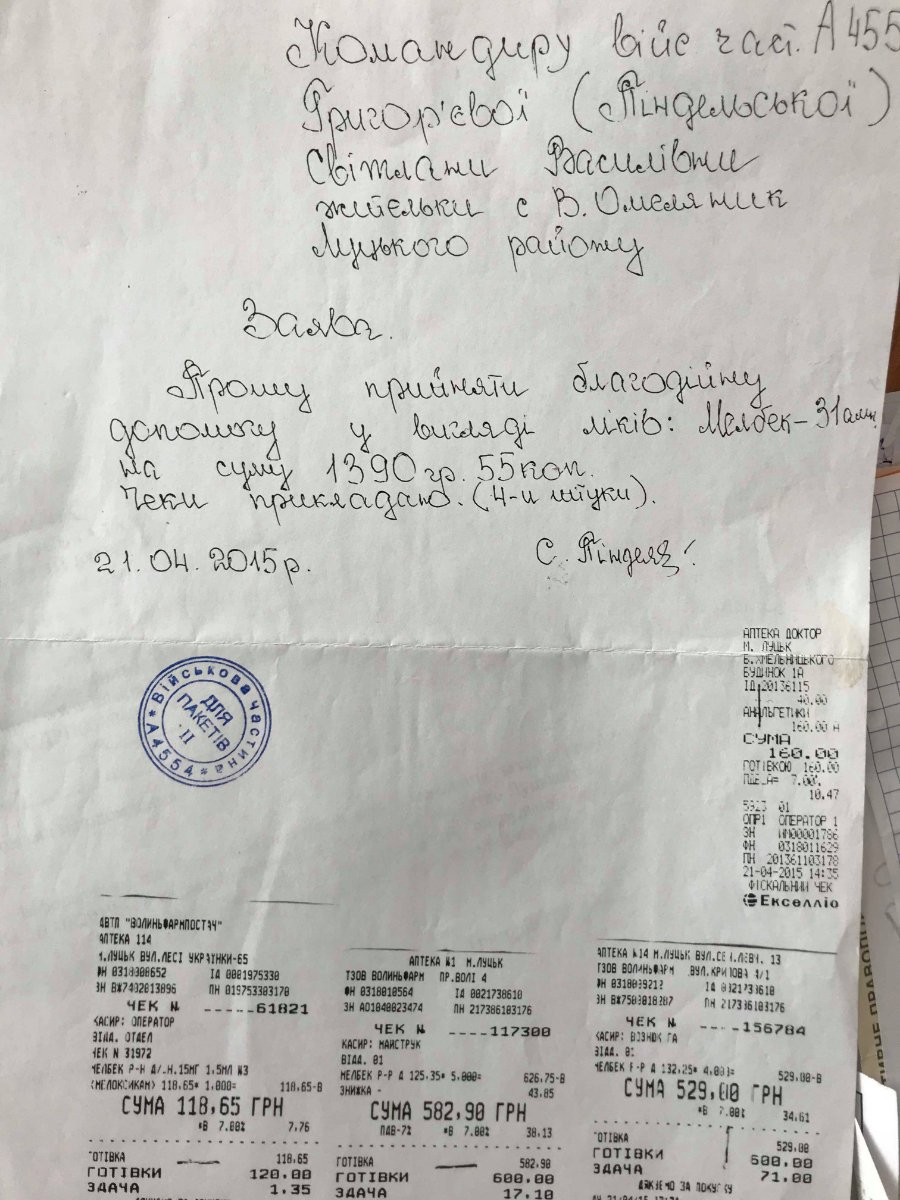 Командиру війс част. А455
Григор'євої (Піндельської)
Світлани Василівни
жительки с В. Омеляник
Луцького району
Заява.
Прошу прийняти благодійну
допомогу у вигляді ліків: Мелбек-31амп
на суму 1390гр. 55коп.
Чеки прикладаю. (4-и штуки).
21.04.2015р.
С. Піндель
Військова частина
А4554
ДЛЯ
ПАКЕТІВ
II
АПТЕКА ДОКТОР
М. ЛУЦЬК
Б.ХМЕЛЬНИЦЬКОГО
БУДИНОК 1А
ІД 20136115
40.00
АНАЛЬГЕТИКИ
160.00
СУМА
160.00
ГОТІВКОЮ 160.00
7.00%
10.47
5923 01
ОПР1 ОПЕРАТОР 1
ЗН ИМ00001786
ФН 0318011629
ПН 201361103178
21-04-2015 14:35
ФІСКАЛЬНИЙ ЧЕК
Екселліо
ДВТП "ВОЛИНЬФАРМПОСТАЧ"
АПТЕКА 114
М.ЛУЦЬК ВУЛ.ЛЕСІ УКРАЇНКИ-65
ФН 0318008652 ІД 0001975330
ЗН ВЖ7402013896 ПН 019753303170
ЧЕК № -----61821
КАСИР: ОПЕРАТОР
ВІДД. ОТДЕЛ
ЧЕК N 31972
МЕЛБЕК Р-Н Д/.Н.15МГ 1.5МЛ №3
<МЕЛОКСИКАМ> 118.65* 1.000= 118.65-В
СУМА 118,65 ГРН
*В 7.00% 7.76
ГОТІВКА 118.65
ГОТІВКИ 120.00
ЗДАЧА 1.35
АПТЕКА №1 М.ЛУЦЬК
ТЗОВ ВОЛИНЬФАРМ ПР.ВОЛІ 4
ФН 0318010564 ІД 0021738610
ЗН АО1040023474 ПН 217386103176
ЧЕК № ----117300
КАСИР: МАЙСТРУК
ВІДД. 01
МЕЛБЕК Р-Р Д 125.35* 5.000= 626.75-В
ЗНИЖКА - 43.85
СУМА 582,90 ГРН
ПДВ-7% *В 7.00% 38.13
ГОТІВКА 582.90
ГОТІВКИ 600.00
ЗДАЧА 17.10
АПТЕКА №14 М.ЛУЦЬК 13
ТЗОВ ВОЛИНЬФАРМ ВУЛ.
ПН 217336103176
ЧЕК № ----156784
КАСИР: ВОЗНЮК ГА
ВІДД. 01
МЕЛБЕК Р-Р Д 132.25* 4.000= 529.00-В
СУМА 529,00 ГРН
*В 7.00% 34.61
ГОТІВКА 529.00
ГОТІВКИ 600.00
ЗДАЧА 71.00
ДЯКУЄМО ЗА ПОКУПКУ